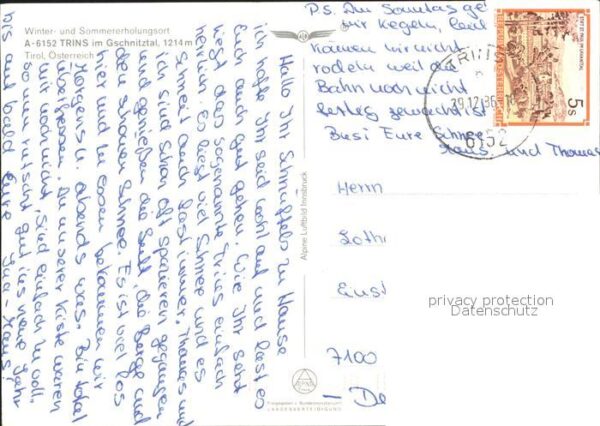 Winter- und Sommererholungsort
A-6152 TRINS im Gschnitztal, 1214 m
Tirol, Österreich
Hallo Ihr Schnuffels zu Hause
ich hoffe Ihr seid wohl auf und lasst es
Euch auch gut gehen. Wie Ihr seht
liegt das sogenannte Trins einfach
herrlich. Es liegt viel Schnee und es
schneit auch fast immer. Thomas und
ich sind schon oft spazieren gegangen
und genießen die Luft, die Berge und
den schönen Schnee. Es ist viel los
hier und zu essen bekommen wir
Morgens u. abends was. Bin total
überfressen. In unserer Kiste waren
wir noch nicht, sind einfach zu voll.
Also nun rutscht gut ins neue Jahr
bis auf bald Eure
P.S. Am Sonntag
wir Kegeln, leider
können wir nicht
rodeln weil die
Bahn noch nicht
fertig gewachst ist
Bussi Eure Schnee
Hans und Thomas
TRINS
29.12.86
6152
STIFT ST. PAUL IM LAVANTTAL
REPUBLIK ÖSTERREICH
5 S
Alpine Luftbild Innsbruck
Herrn
Loth
Einst
7100
De
privacy protection
Datenschutz